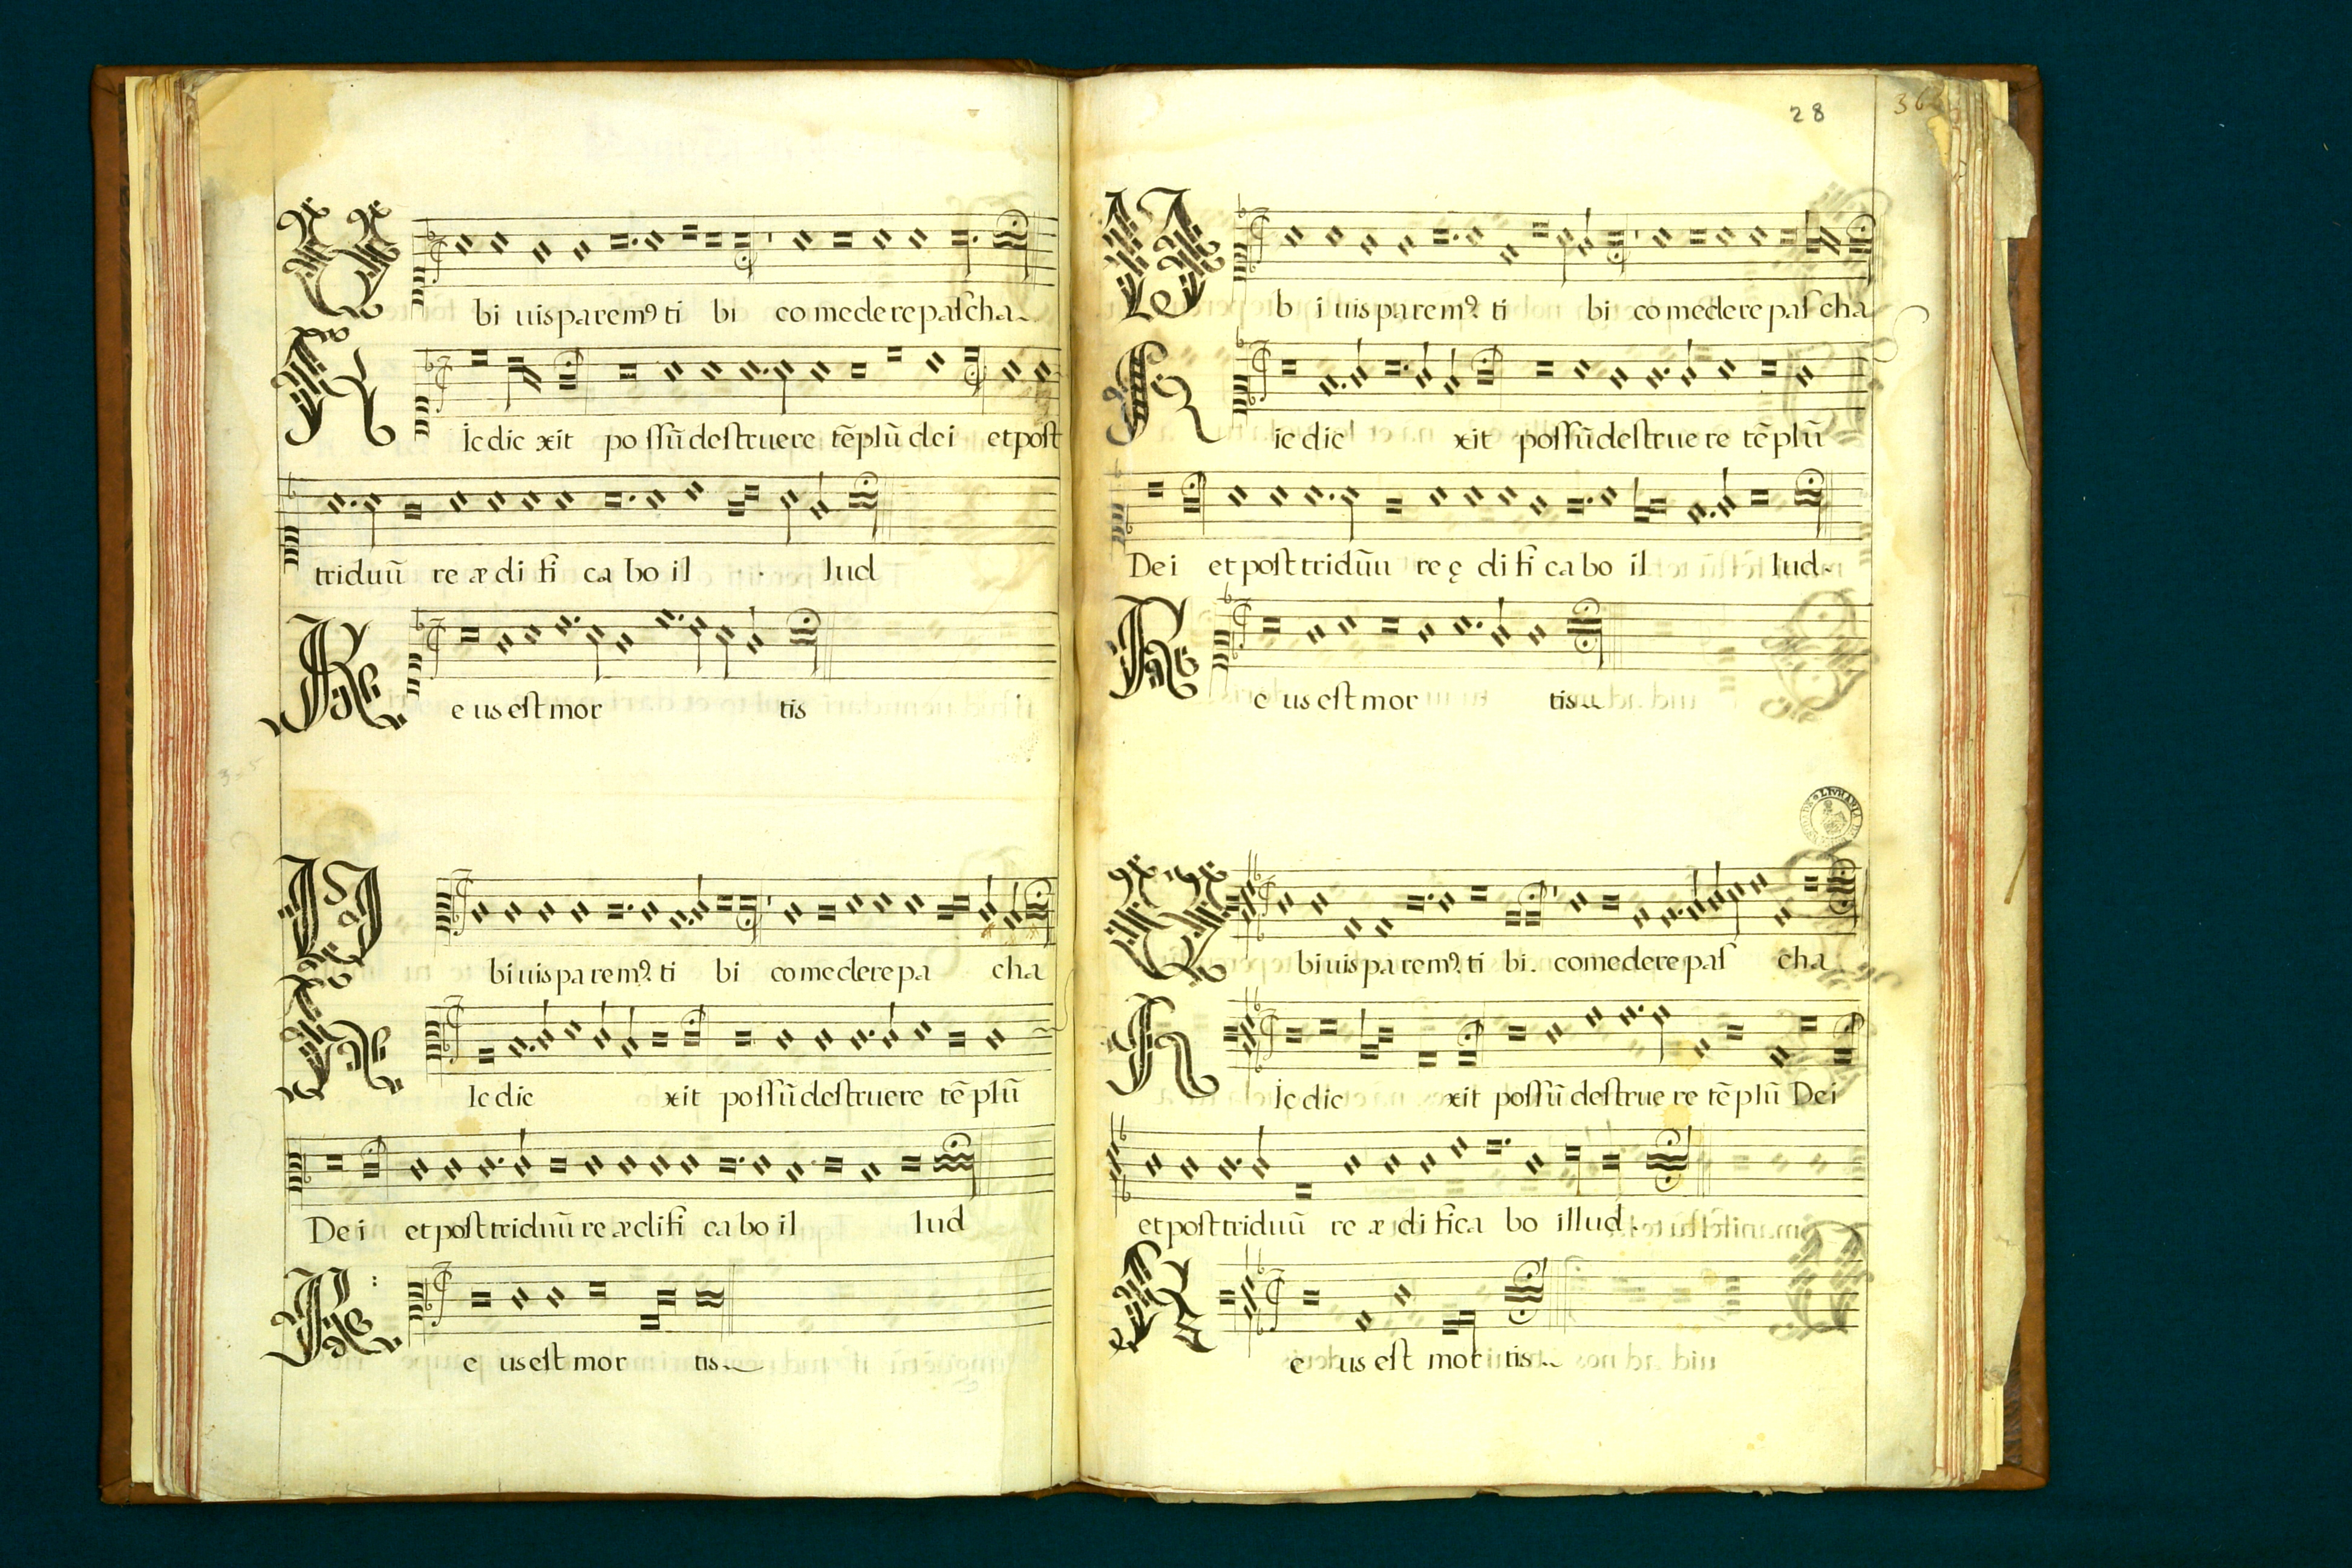 V bi uis parem⁹ ti bi comedere pascha
H Ic dic xit possũ destruere tẽplũ dei et post
triduũ re ædi fi ca bo il lud
R e us est mor tis
V bi uis parem⁹. ti bi comedere pa cha
H Ic dic xit possũ destruere tẽ plũ
De i et post triduũ re ædifi ca bo il lud
R e us est mor tis
28
V b i uis parem⁹. ti bi comedere pas cha
H ic dic xit possũ destrue re tẽ plũ
De i et post triduũ re ę di fi ca bo il lud
R e us est mor tis
V bi uis parem⁹. ti bi. comedere pas cha
H Ic dic xit possũ destrue re tẽ plũ Dei
et post triduũ re æ di fica bo illud.
R e us est mor tis